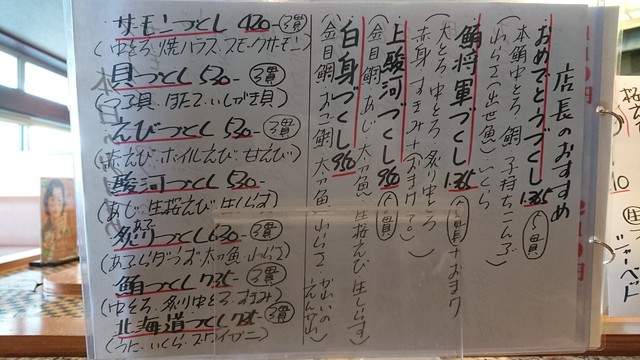 店長のおすすめ
おめでとうづくし 1.365 (5貫)
(本鮪中とろ 鯛 子持ちこんぶ
わらさ(出世魚)いくら)
鮪将軍づくし 1.365 (5貫+おまけ)
(大とろ 中とろ 炙り中とろ
赤身 すきみ+おまけ)
上駿河づくし 960 (5貫)
(金目鯛 あじ 太刀魚 生桜えび 生しらす)
白身づくし 960
(金目鯛 太刀魚 わらさ えんがわ)
サーモンづくし 420- (3貫)
(中とろ・焼ハラス・スモークサーモン)
貝づくし 530- (3貫)
(つぶ貝・ほたて・いしがき貝)
えびづくし 530- (3貫)
(赤えび・ボイルえび・甘えび)
駿河づくし 530-
(あじ 生桜えび 生しらす)
炙りづくし 630- (3貫)
(太刀魚・わらさ)
鮪づくし 735- (3貫)
(中とろ・炙り中とろ・すきみ)
北海道づくし 735- (3貫)
(うに・いくら・ズワイガニ)
シャーベット